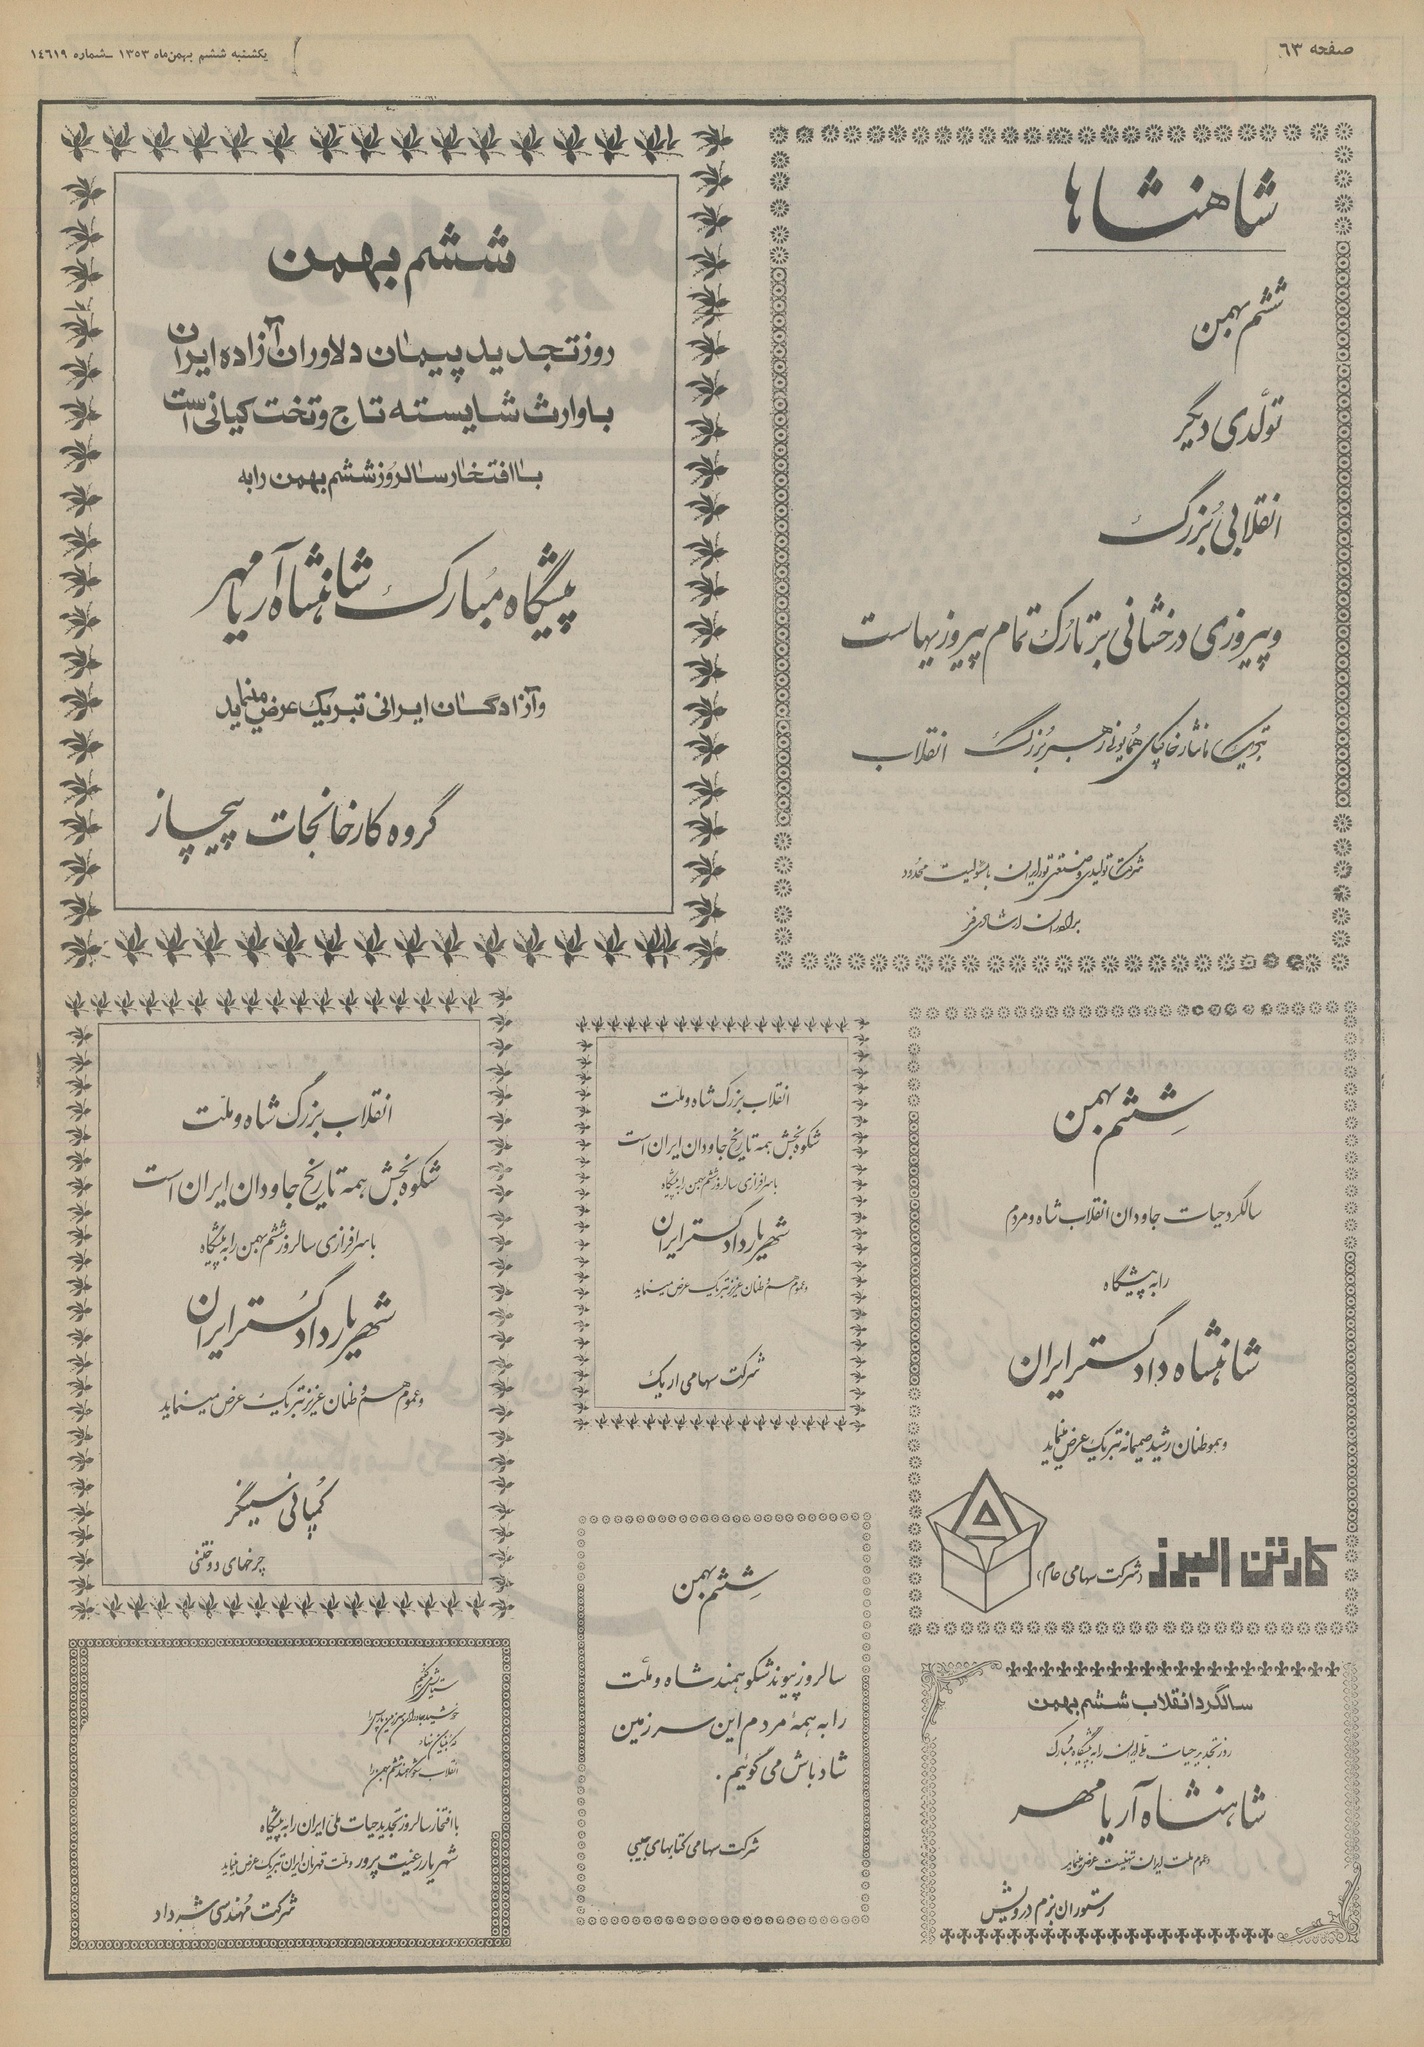 صفحه ٦٣
یکشنبه ششم بهمن‌ماه ١٣٥٣ ـ شماره ١٤٦١٩
شاهنشاها
ششم بهمن
تولّدی دیگر
انقلابی بزرگ
و پیروزی درخشانی بر تارک تمام پیروزیهاست
تبریک ما نثار خاکپای همایونی رهبر بزرگ انقلاب
شرکت تولیدی و صنعتی نور ایران با مسئولیت محدود
برادران ارشادی فر
ششم بهمن
روز تجدید پیمان دلاوران آزاده ایران
با وارث شایسته تاج و تخت کیانی است
با افتخار سالروز ششم بهمن را به
پیشگاه مبارک شاهنشاه آریامهر
و آزادگان ایرانی تبریک عرض مینماید
گروه کارخانجات پیچاز
ششم بهمن
سالگرد حیات جاودان انقلاب شاه و مردم
را به پیشگاه
شاهنشاه دادگستر ایران
و هموطنان رشید صمیمانه تبریک عرض مینماید
کارتن البرز (شرکت سهامی عام)
انقلاب بزرگ شاه و ملّت
شکوه بخش همه تاریخ جاودان ایران است
با سرافرازی سالروز ششم بهمن را به پیشگاه
شهریار دادگستر ایران
و عموم هم‌وطنان عزیز تبریک عرض مینماید
شرکت سهامی اریک
انقلاب بزرگ شاه و ملّت
شکوه بخش همه تاریخ جاودان ایران است
با سرافرازی سالروز ششم بهمن را به پیشگاه
شهریار دادگستر ایران
و عموم هم‌وطنان عزیز تبریک عرض مینماید
کمپانی سینگر
چرخهای دوختنی
سالگرد انقلاب ششم بهمن
روز تجدید حیات ملی ایران را به پیشگاه مبارک
شاهنشاه آریامهر
و عموم ملت ایران تهنیت عرض مینماید
رستوران بزم درویش
ششم بهمن
سالروز پیوند شکوهمند شاه و ملّت
را به همهٔ مردم این سرزمین
شادباش می گوئیم .
شرکت سهامی کتابهای جیبی
ستایش می‌کنیم
خورشید جاودان سرزمین پارسی را
که بنیان نهاد
انقلاب شکوهمند ششم بهمن را
با افتخار سالروز تجدید حیات ملی ایران را به پیشگاه
شهریار رعیت پرور و ملت قهرمان ایران تبریک عرض مینماید
شرکت مهندسی شهرداد